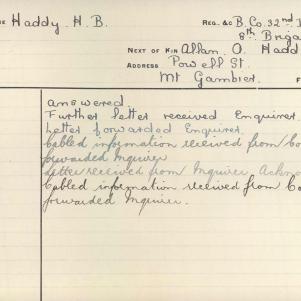 E Haddy. H. B. REG. &C B. Co. 32nd
8th Briga
NEXT OF KIN Allan. O. Hadd
ADDRESS Powell St.
Mt Gambier. F
answered.
Further letter received Enquirer
Letter forwarded Enquirer.
Cabled information received from Co
forwarded Inquirer
Letter received from Inquirer, Ackno
Cabled information received from Co
forwarded Inquirer.